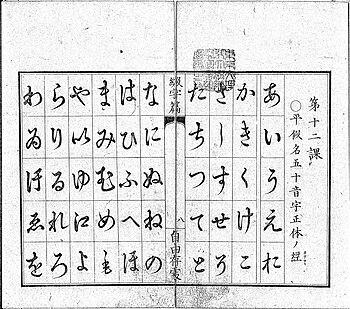 第十二課
○平假名五十音字正体ノ經
あいうえお
かきくけこ
さしすせそ
たちつてと
綴字篇
八
なにぬねの
はひふへほ
まみむめも
や𛀆ゆ𛀁よ
らりるれろ
わゐ𛄟ゑを